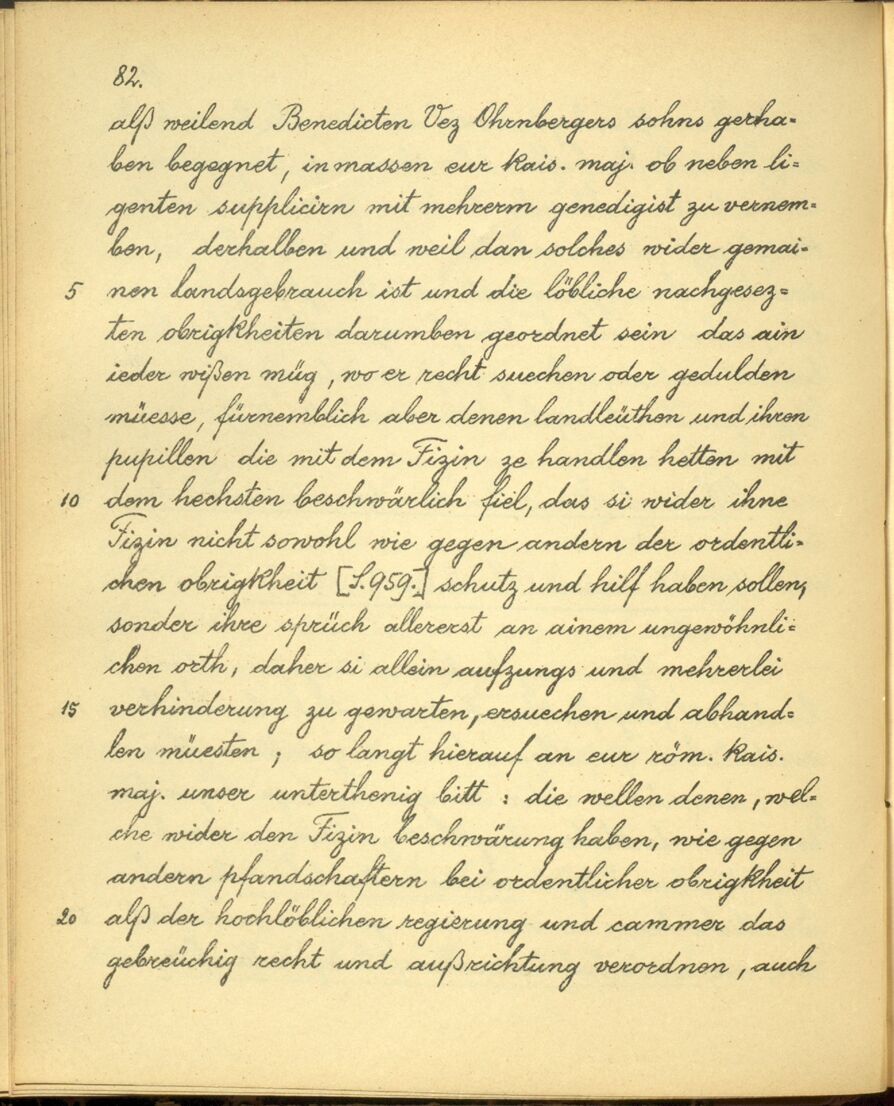 82.
alß weilend Benedicten Vez Ohrnbergers sohns gerha=
ben begegnet, inmassen eur kais. maj. ob neben li=
genten supplicirn mit mehrerm genedigist zu vernem=
ben, derhalben und weil dan solches wider gemai=
5 nen landsgebrauch ist und die löbliche nachgesez=
ten obrigkheiten darumben geordnet sein das ain
ieder wißen müg, wo er recht suechen oder gedulden
müesse, fürnemblich aber denen landleüthen und ihren
pupillen die mit dem Fizin ze handlen hetten mit
10 dem hechsten beschwärlich fiel, das si wider ihne
Fizin nicht sowohl wie gegen andern der ordentli=
chen obrigkheit [S. 959.] schutz und hilf haben sollen,
sonder ihre sprüch allererst an ainem ungewöhnli=
chen orth, daher si allein aufzungs und mehrerlei
15 verhinderung zu gewarten, ersuechen und abhand=
len müesten; so langt hierauf an eur röm. kais.
maj. unser unterthenig bitt: die wellen denen, wel=
che wider den Fizin beschwärung haben, wie gegen
andern pfandschaftern bei ordentlicher obrigkheit
20 alß der hochlöblichen regierung und cammer das
gebreüchig recht und außrichtung verordnen, auch